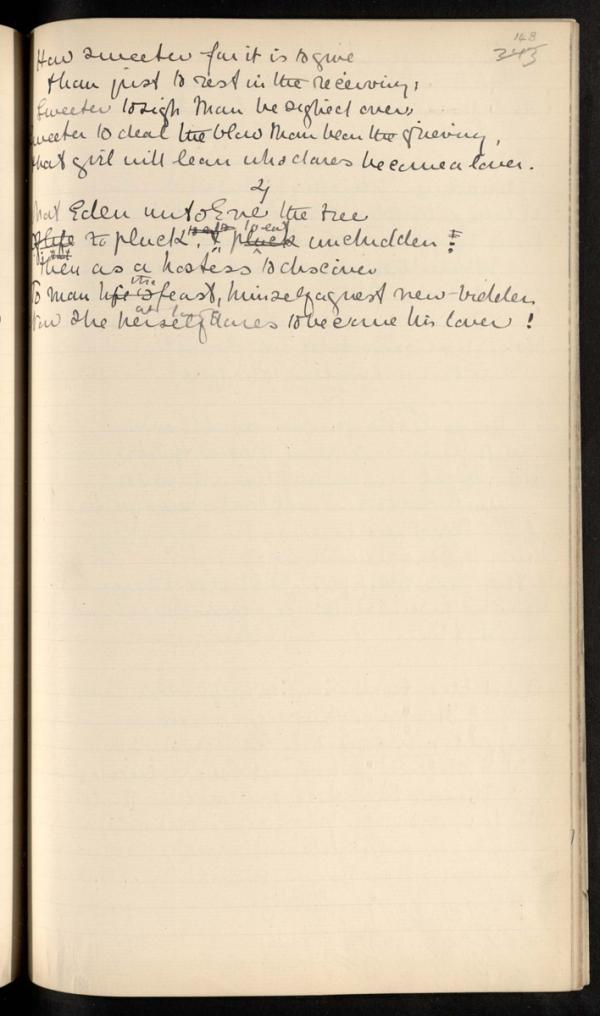 148
243
How sweeter far it is to give
than just to rest in the receiving,
Sweeter to sigh than be sighed over,
Sweeter to deal the blow than bear the grieving,
that girl will learn who dares become a lover.
2
What Eden unto Eve the tree
Of life to pluck, to eat unchidden!
Then as a hostess to discover
To man the feast, himself a guest new-bidden,
Now she herself dares to become his lover!